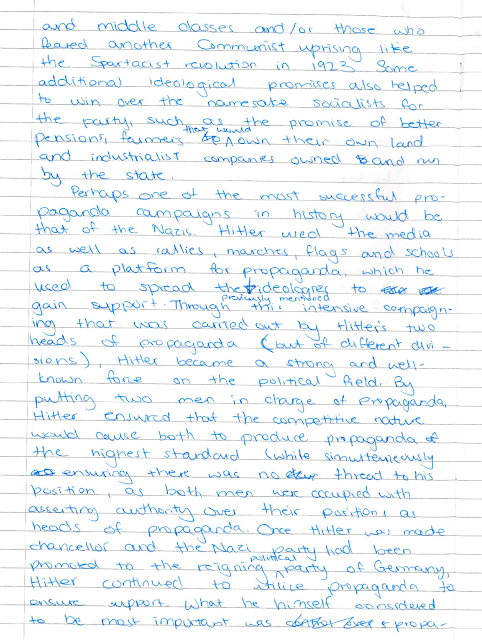 and middle classes and/or those who
feared another Communist uprising like
the Spartacist revolution in 1923. Some
additional ideological promises also helped
to win over the namesake socialists for
the party, such as the promise of better
pensions, farmers that would own their own land
and industrialist companies owned and run
by the state.
Perhaps one of the most successful pro-
paganda campaigns in history would be
that of the Nazis. Hitler used the media
as well as rallies, marches, flags and schools
as a platform for propaganda, which he
used to spread the ideologies to
gain support. Through this previously mentioned intensive campaign-
ing that was carried out by Hitler's two
heads of propaganda (but of different divi-
sions), Hitler became a strong and well-
known force on the political field. By
putting two men in charge of propaganda,
Hitler ensured that the competitive nature
would cause both to produce propaganda of
the highest standard (while simulteneously
ensuring there was no threat to his
position, as both men were occupied with
asserting authority over their positions as
heads of propaganda. Once Hitler was made
chancellor and the Nazi party had been
promoted to the reigning political party of Germany,
Hitler continued to utilize propaganda to
ensure support. What he himself considered
to be most important was control over propa-